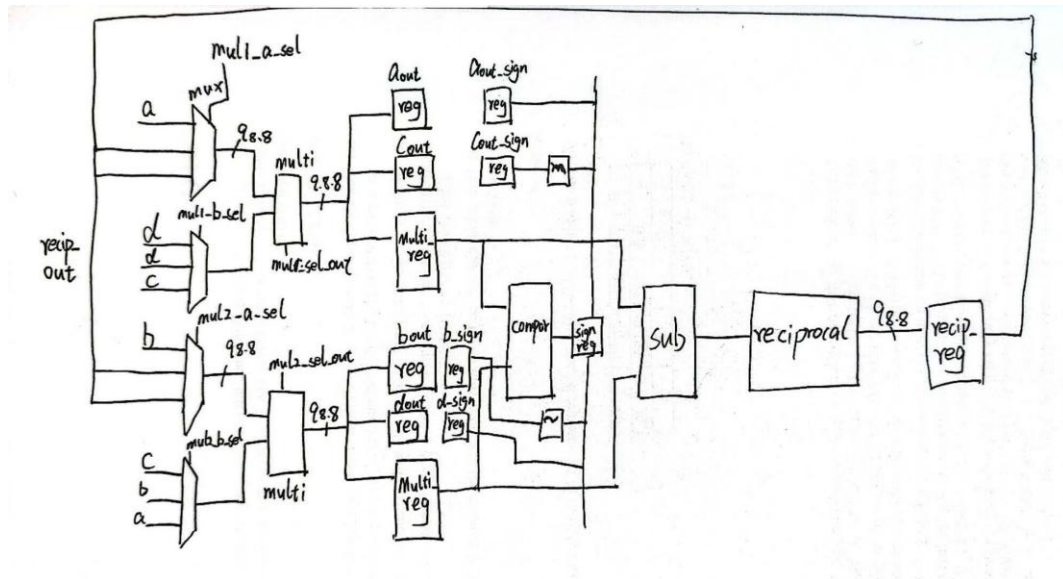 mul1_a_sel
mux
a
98.8
multi
mul1_b_sel
d
d
c
98.8
mul1_sel_out
recip_
out
aout
reg
aout_sign
reg
Cout
reg
Cout_sign
reg
Multi_
reg
mul2_a_sel
b
98.8
mul2_sel_out
98.8
mul2_b_sel
c
b
a
multi
bout
reg
b_sign
reg
dout
reg
d-sign
reg
~
Multi_
reg
compar
sign
reg
sub
reciprocal
98.8
recip_
reg